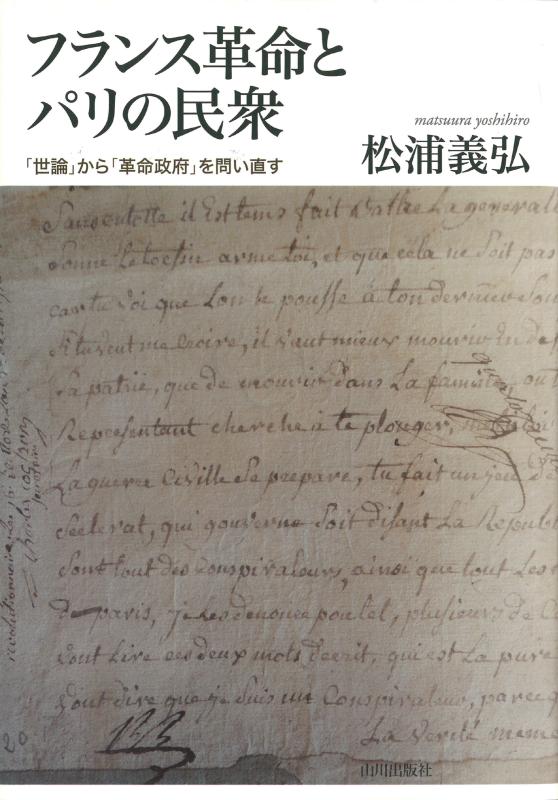 フランス革命と
パリの民衆
「世論」から「革命政府」を問い直す
matsuura yoshihiro
松浦義弘
Sansculotte il Est tems fait Battre La general
Sonne Le tocsin arme toi, et que cela ne Soit pas
car tu voi que Lon te pousse à ton dernier Sou
Si tu veut me Croire, il vaut mieux mourir en de
La patrie, que de mourir dans La famine,
Representant cherche à te plonger,
La guerre Civille Se prepare, tu fait un jeu de
Scelerat, qui gouverne Soit disant La Republ
Sont tout des Conspirateurs, ainsi que tout Les
de paris, je Les denonce
vont Lire ces deux mots decrit, qui est La pure
vont dire que je Suis un Conspirateur, parce q
La Verité meme
20
山川出版社